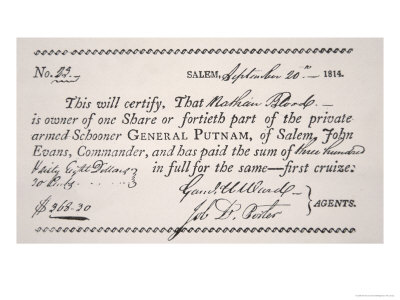 No. 23. SALEM, September 20th 1814.
This will certify, That Nathan Blood
is owner of one Share or fortieth part of the private
armed Schooner GENERAL PUTNAM, of Salem, John
Evans, Commander, and has paid the sum of three hundred
Sixty Eight Dollars in full for the same—first cruize:
30 Cts
$ 368-30
Ward
Job D. Porter
AGENTS.